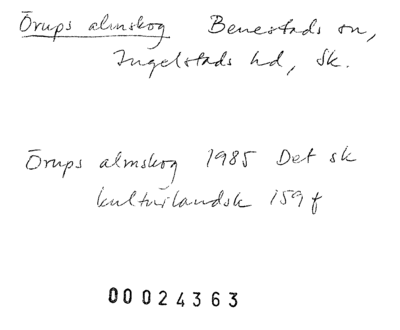 Örups almskog Benestads sn,
Ingelstads hd, Sk.
Örups almskog 1985 Det sk
kulturlandsk 159 f
00024363